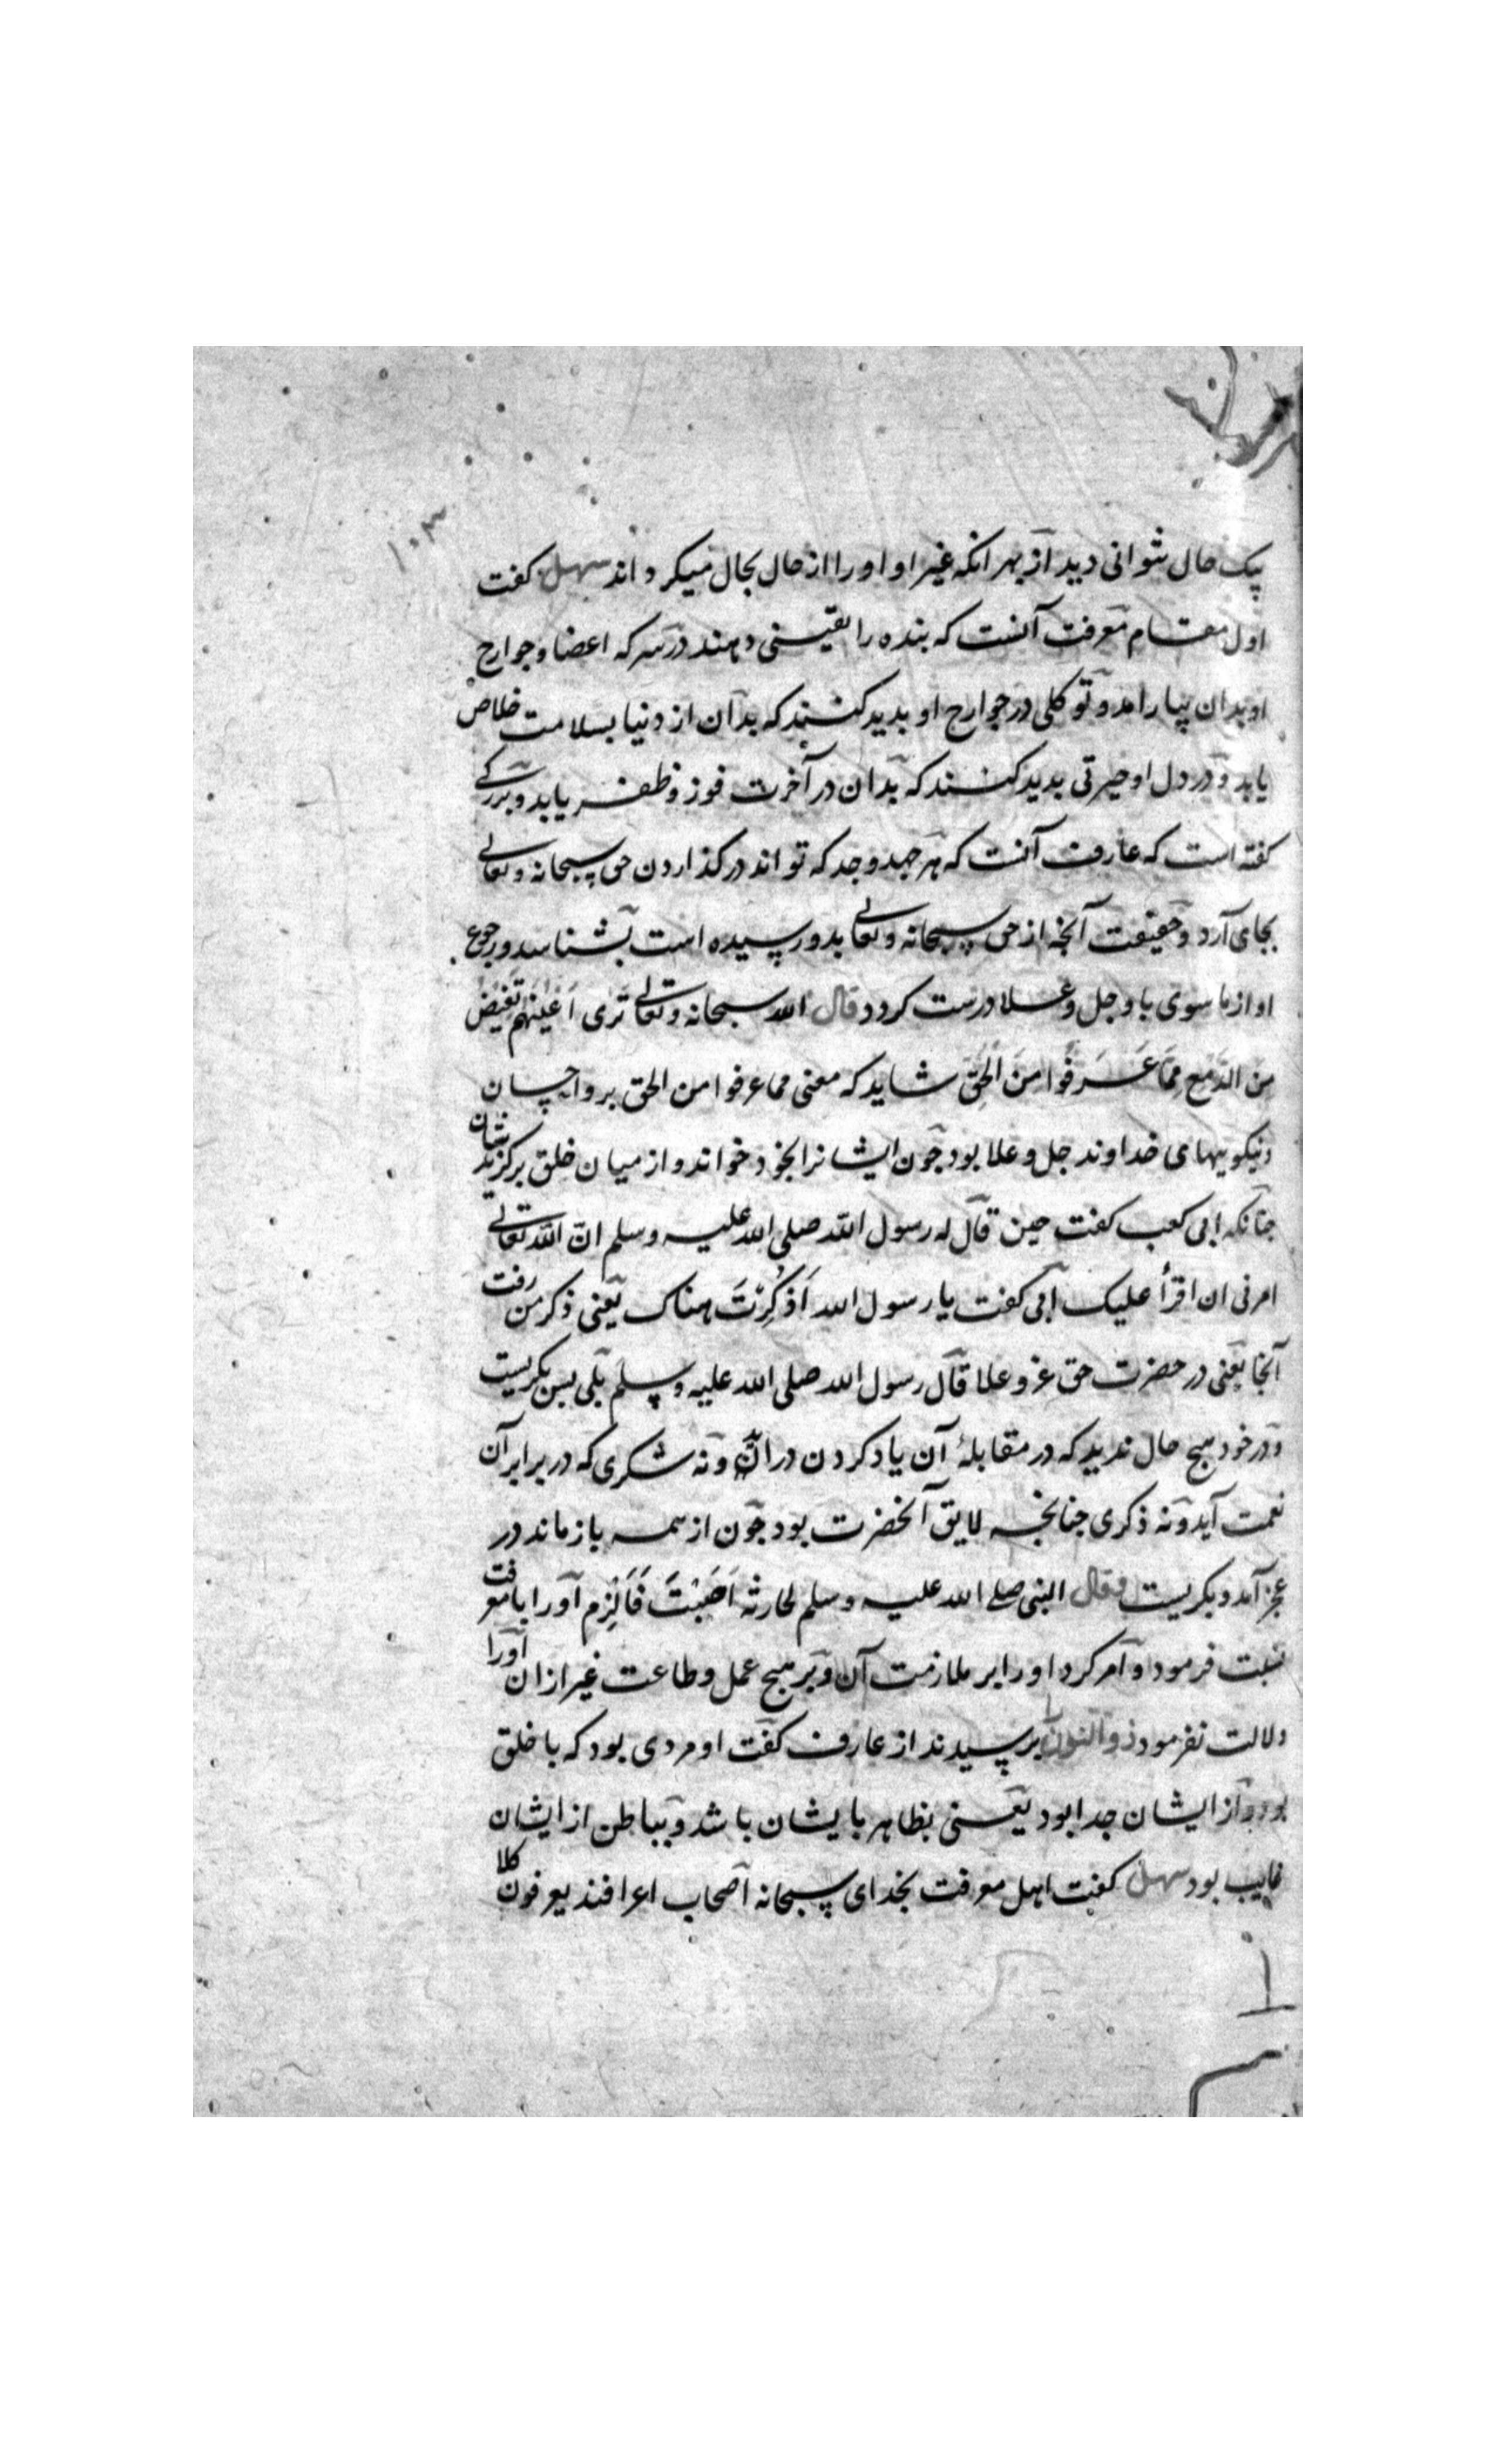 ۱۰۳
یک حال نتوانی دید از بهر انکه غیر او او را از حال بحال میکرداند سهل کفت
اول مقام معرفت آنست که بنده را یقینی دهند در سر که اعضا و جوارح
او بدان بیارامد و توکلی در جوارح او بدید کنند که بدان از دنیا بسلامت خلاص
یابد و در دل او حیرتی بدید کنند که بدان در آخرت فوز و ظفر یابد و بزرکی
کفته است که عارف آنست که هر جهد و جد که تواند در کذاردن حق سبحانه و تعالی
بجای آرد و حقیقت آنچه از حق سبحانه و تعالی بدو رسیده است بشناسد و رجوع
او از ما سوی با و جل و علا درست کردد قال الله سبحانه و تعالی تَری اَعْیُنَهُم تَفیضُ
مِنَ الدَّمعِ مِمّا عَرَفُوا مِنَ الْحَقِّ شاید که معنی مما عرفوا من الحق بر و احسان
و نیکویهای خداوند جل و علا بود چون ایشانرا بخود خواند و از میان خلق برکزید شان
چنانکه ابی کعب کفت حین قال له رسول الله صلی الله علیه و سلم ان الله تعالی
امرنی ان اقرأ علیک ابی کفت یا رسول الله اَذُکِرْتُ هناک یعنی ذکر من رفت
آنجا یعنی در حضرت حق عز و علا قال رسول الله صلی الله علیه و سلم بلی پس بکریست
و در خود هیچ حال ندید که در مقابلهٔ آن یاد کردن در آن و نه شکری که در برابر آن
نعمت آید و نه ذکری چنانچه لایق آنحضرت بود چون از همه باز ماند در
عجز آمد و بکریست و قال النبی صلی الله علیه و سلم لحارثه اَصَبْتَ فَالْزِم او را با معرفت
نسبت فرمود و امر کرد او را بر ملازمت آن و بر هیچ عمل و طاعت غیر از ان او را
دلالت نفرمود ذو النون را پرسیدند از عارف کفت او مردی بود که با خلق
بود و از ایشان جدا بود یعنی بظاهر با یشان باشد و بباطن از ایشان
غایب بود سهل کفت اهل معرفت بخدای سبحانه اصحاب اعرافند یعرفون کلا